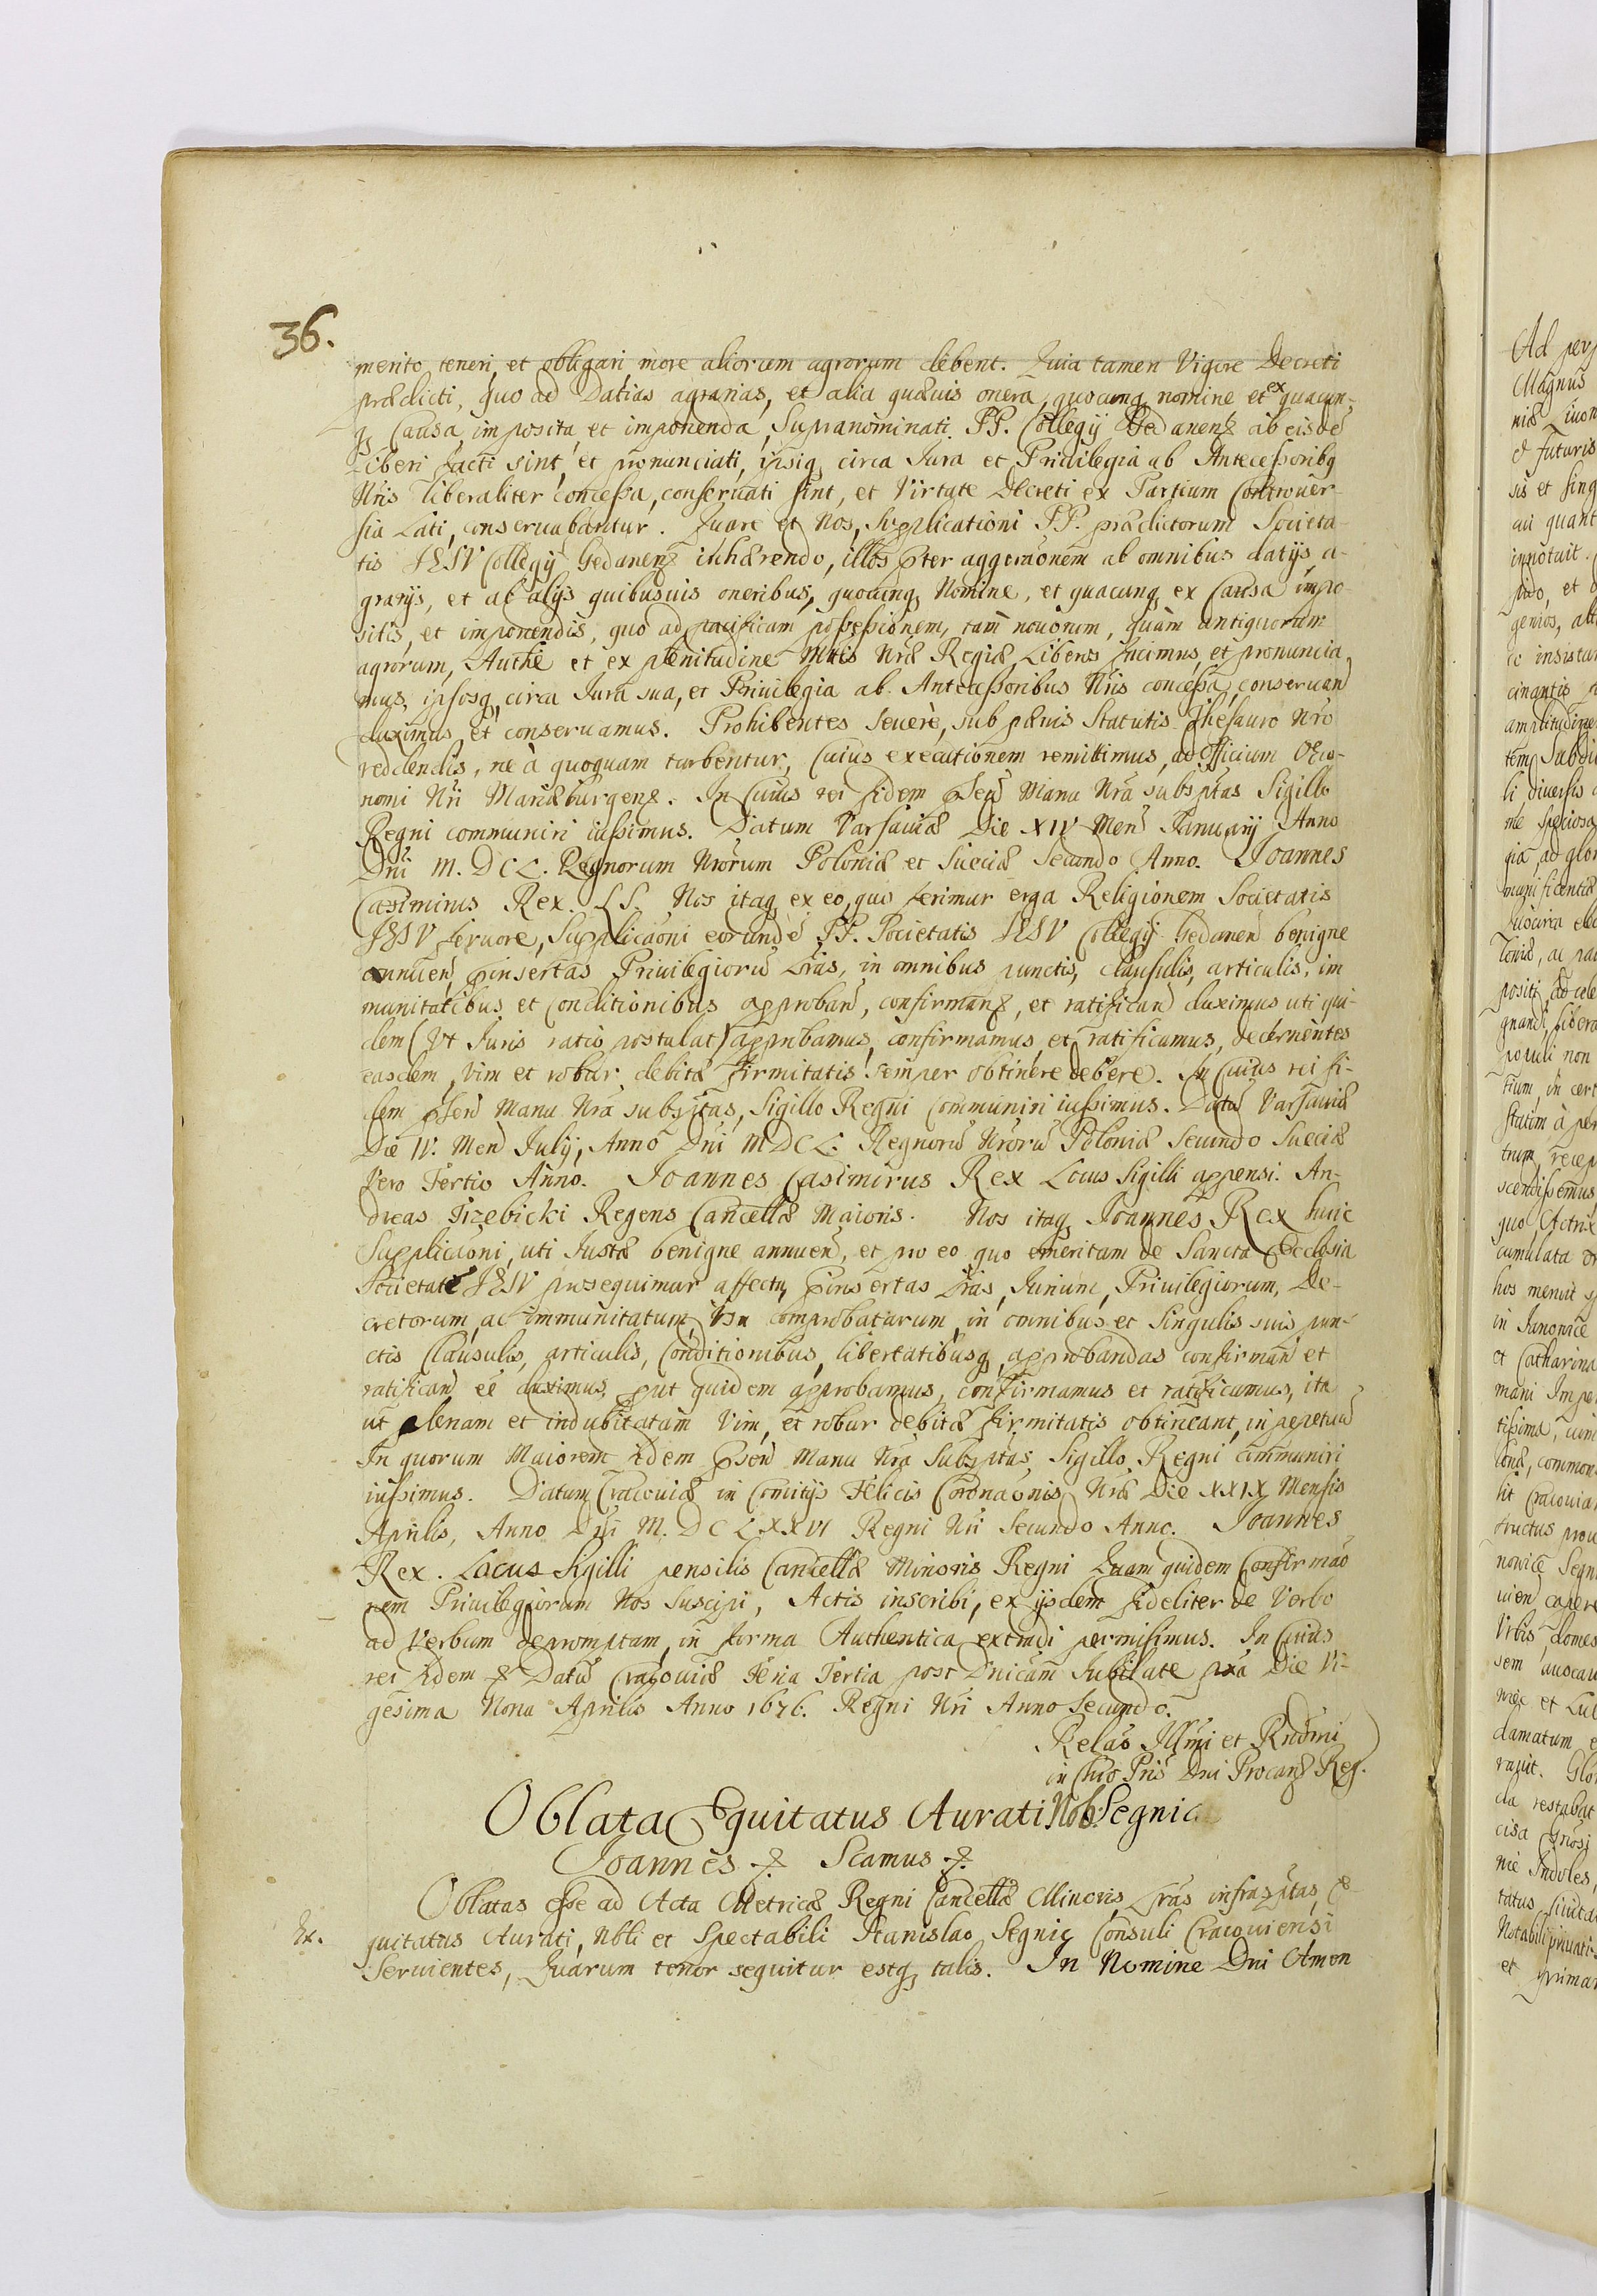 36.
merito teneri, et obligari more aliorum agrorum debent. Quia tamen Vigore Decreti
prædicti, quo ad Datias agrarias, et alia quævis onera, quocunq nomine et ex quacun-
q Causa imposita et imponenda, Supranominati PP. Collegij Gedanens ab eisdē
Liberi facti sint, et pronunciati, ipsiq circa Iura et Priuilegia ab Antecessoribq
Nris liberaliter concessa, conseruati sint, et Virtute Decreti ex Partium Controuer-
sia Lati, conseruabantur. Quare et Nos, Supplicationi PP. prædictorum Societa-
tis IESV Collegij Gedanens inhærendo, illos pter aggeraonem ab omnibus datijs a-
grarijs, et ab alijs quibusuis oneribus, quocunq Nomine, et quacunq ex Causa impo-
sitis, et imponendis, quo ad pacificam possessionem, tam nouorum, quàm antiquorum
agrorum, Authē et ex plenitudine Mttis Nræ Regiæ Liberos facimus, et pronuncia
mus, ipsosq circa Iura sua, et Priuilegia ab Antecessoribus Nris concessa, conseruan
duximus, et conseruamus. Prohibentes seuerè, sub pænis Statutis Thesauro Nro
reddendis, ne à quoquam turbentur, Cuius executionem remittimus, ad Officium Oeco-
nomi Nri Mariæburgens. In Cuius rei fidem psen Manu Nra subsptas Sigillo
Regni communiri iussimus. Datum Varsauiæ Die XIV Men Ianuarij Anno
Dni M. DCL. Regnorum Nrorum Poloniæ et Sueciæ Secundo Anno. Joannes
Casimirus Rex. LS. Nos itaq ex eo, quo ferimur erga Religionem Societatis
IESV feruore, Supplicaoni eorundē PP. Societatis IESV Collegij Gedanen benigne
annuen, pinsertas Priuilegiorū Lras, in omnibus punctis, clausulis, articulis, im
munitatibus et Conditionibus approban, confirmans, et ratifican duximus uti qui-
dem (Vt Iuris ratio postulat) approbamus, confirmamus, et ratificamus, decernentes
easdem, Vim et robur debitæ firmitatis semper obtinere debere. In Cuius rei fi-
dem psen Manu Nra subsptas, Sigillo Regni Communiri iussimus. Datū Varsauiæ
Die IV. Men Iulij, Anno Dni MDCL. Regnorū Nrorū Poloniæ Secundo Sueciæ
Vero Tertio Anno. Joannes Casimirus Rex Locus Sigilli appensi. An-
dreas Trzebicki Regens Cancellæ Maioris. Nos itaq Joannes Rex huic
Supplicaoni, uti Iustæ benigne annuen, et pro eo quo emeritam de Sancta Ecclesia
Societatē IESV prosequimur affectu, pinsertas Lras, Iurium, Priuilegiorum, De-
cretorum, ac immunitatum, Vsu comprobatarum, in omnibus et Singulis suis pun-
ctis Clausulis, articulis, Conditionibus, libertatibusq, approbandas confirman et
ratifican eē duximus, put quidem approbamus, confirmamus et ratificamus, ita
ut plenam et indubitatam Vim, et robur debitæ firmitatis obtineant, in ppetuū
In quorum Maiorem fidem psen Manu Nra Subsptas, Sigillo Regni communiri
iussimus. Datum Cracouiæ in Comitijs Felicis Coronaonis Nræ Die XXIX Mensis
Aprilis, Anno Dni M. DCLXXVI Regni Nri Secundo Anno. Joannes
Rex. Locus Sigilli pensilis Cancellæ Minoris Regni Quam quidem Confirmao
nem Priuilegiorum Nos Suscipi, Actis inscribi, ex ijsdem fideliter de Verbo
ad Verbum depromptam, in forma Authentica extradi permisimus. In Cuius
rei fidem Datū Cracouiæ Feria Tertia post Dnicam Iubilate pxa Die Vi-
gesima Nona Aprilis Anno 1676. Regni Nri Anno Secundo.
Relao Illmi et Rndmi
in Chro Pris Dni Procans Reg.
Oblata Equitatus Aurati Nob. Segnic
Joannes Scamus
Oblatas esse ad Acta Metricæ Regni Cancellæ Minoris, Lras infrasptas, E-
Ex. quitatus Aurati, Nbli et Spectabili Stanislao Segnic Consuli Cracouiensi
Seruientes, Quarum tenor sequitur estq talis. In Nomine Dni Amen
Ad perp
Magnus
et futuris
sis et sing
innotuit.
amplitudine
li diuersis
me speciosa
gia, ad glor
munificentiæ
populi non
statim à per
hos meruit
et Catharina
mani Imper
lit Cracouia
Vrbis domes
nic et Lub
damatum e
da restabat
nie Indoles,
Notabili priuati-
et primar